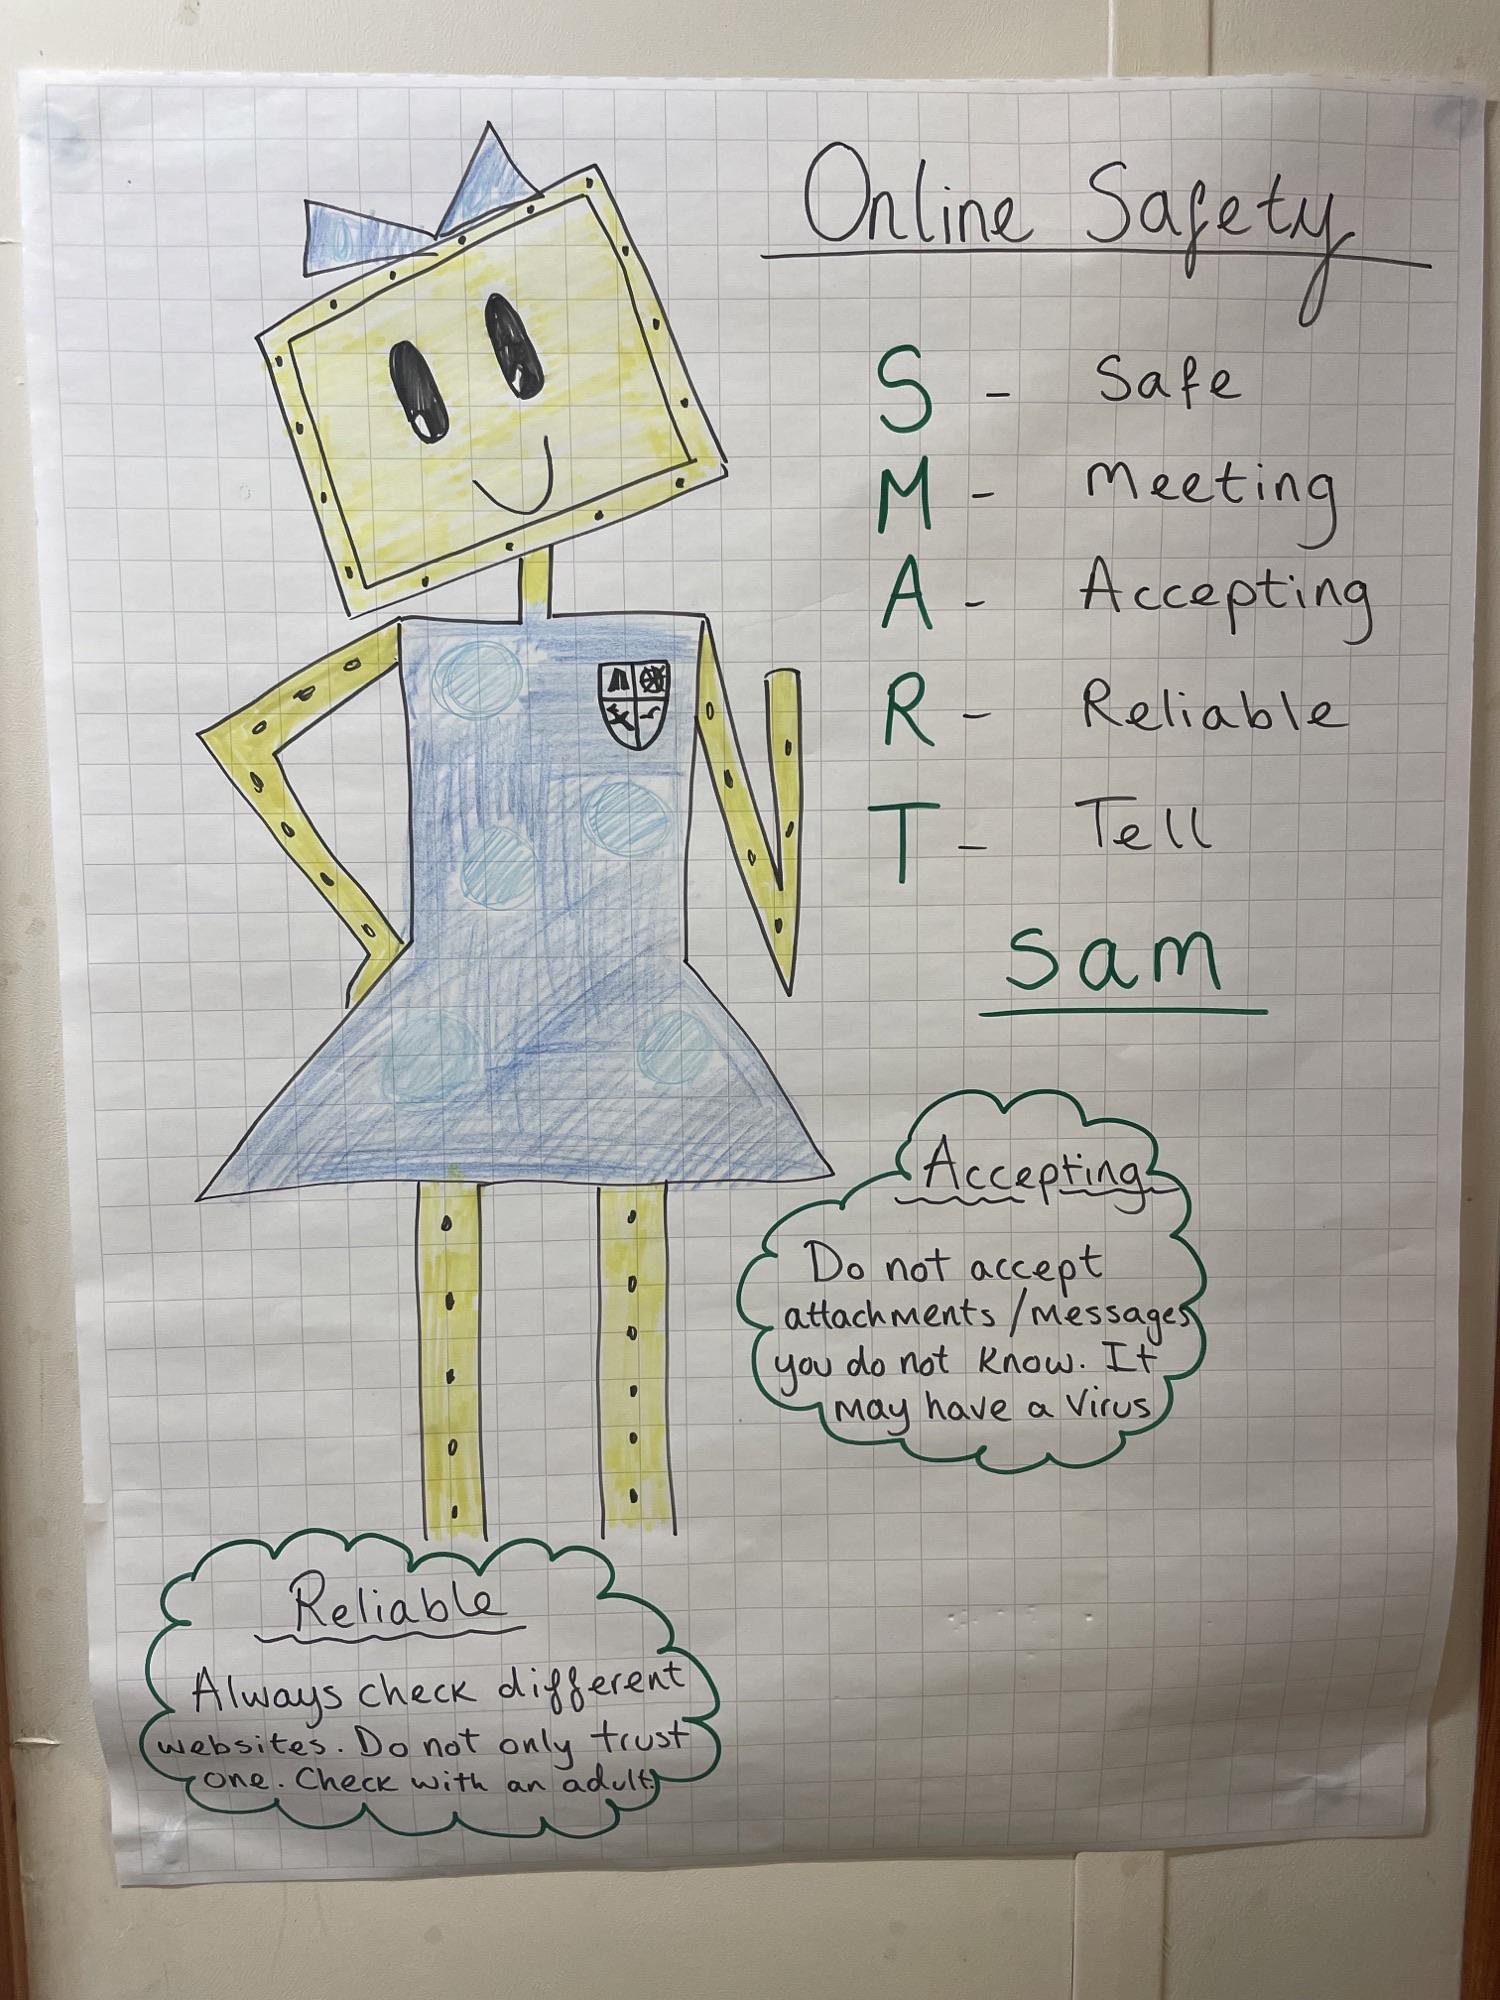 Online Safety
S - Safe
M - Meeting
A - Accepting
R - Reliable
T - Tell
Sam
Accepting
Do not accept
attachments/messages
you do not know. It
may have a virus
Reliable
Always check different
websites. Do not only trust
one. Check with an adult.